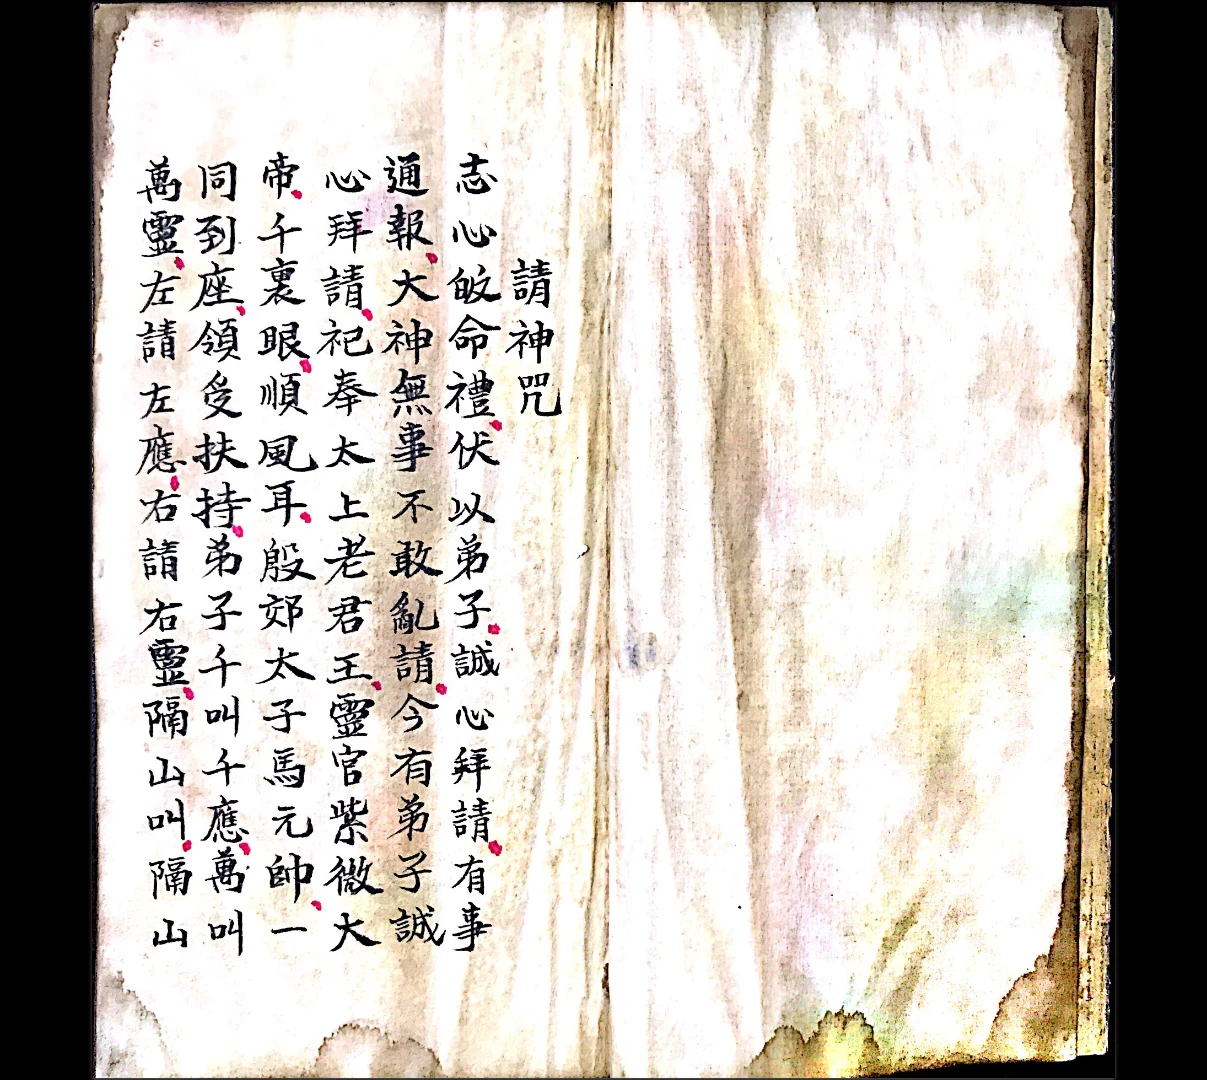 請神咒
志心皈命禮伏以弟子誠心拜請有事
通報大神無事不敢亂請今有弟子誠
心拜請祀奉太上老君王靈官紫微大
帝千裏眼順風耳殷郊太子馬元帥一
同到座領受扶持弟子千叫千應萬叫
萬靈左請左應右請右靈隔山叫隔山